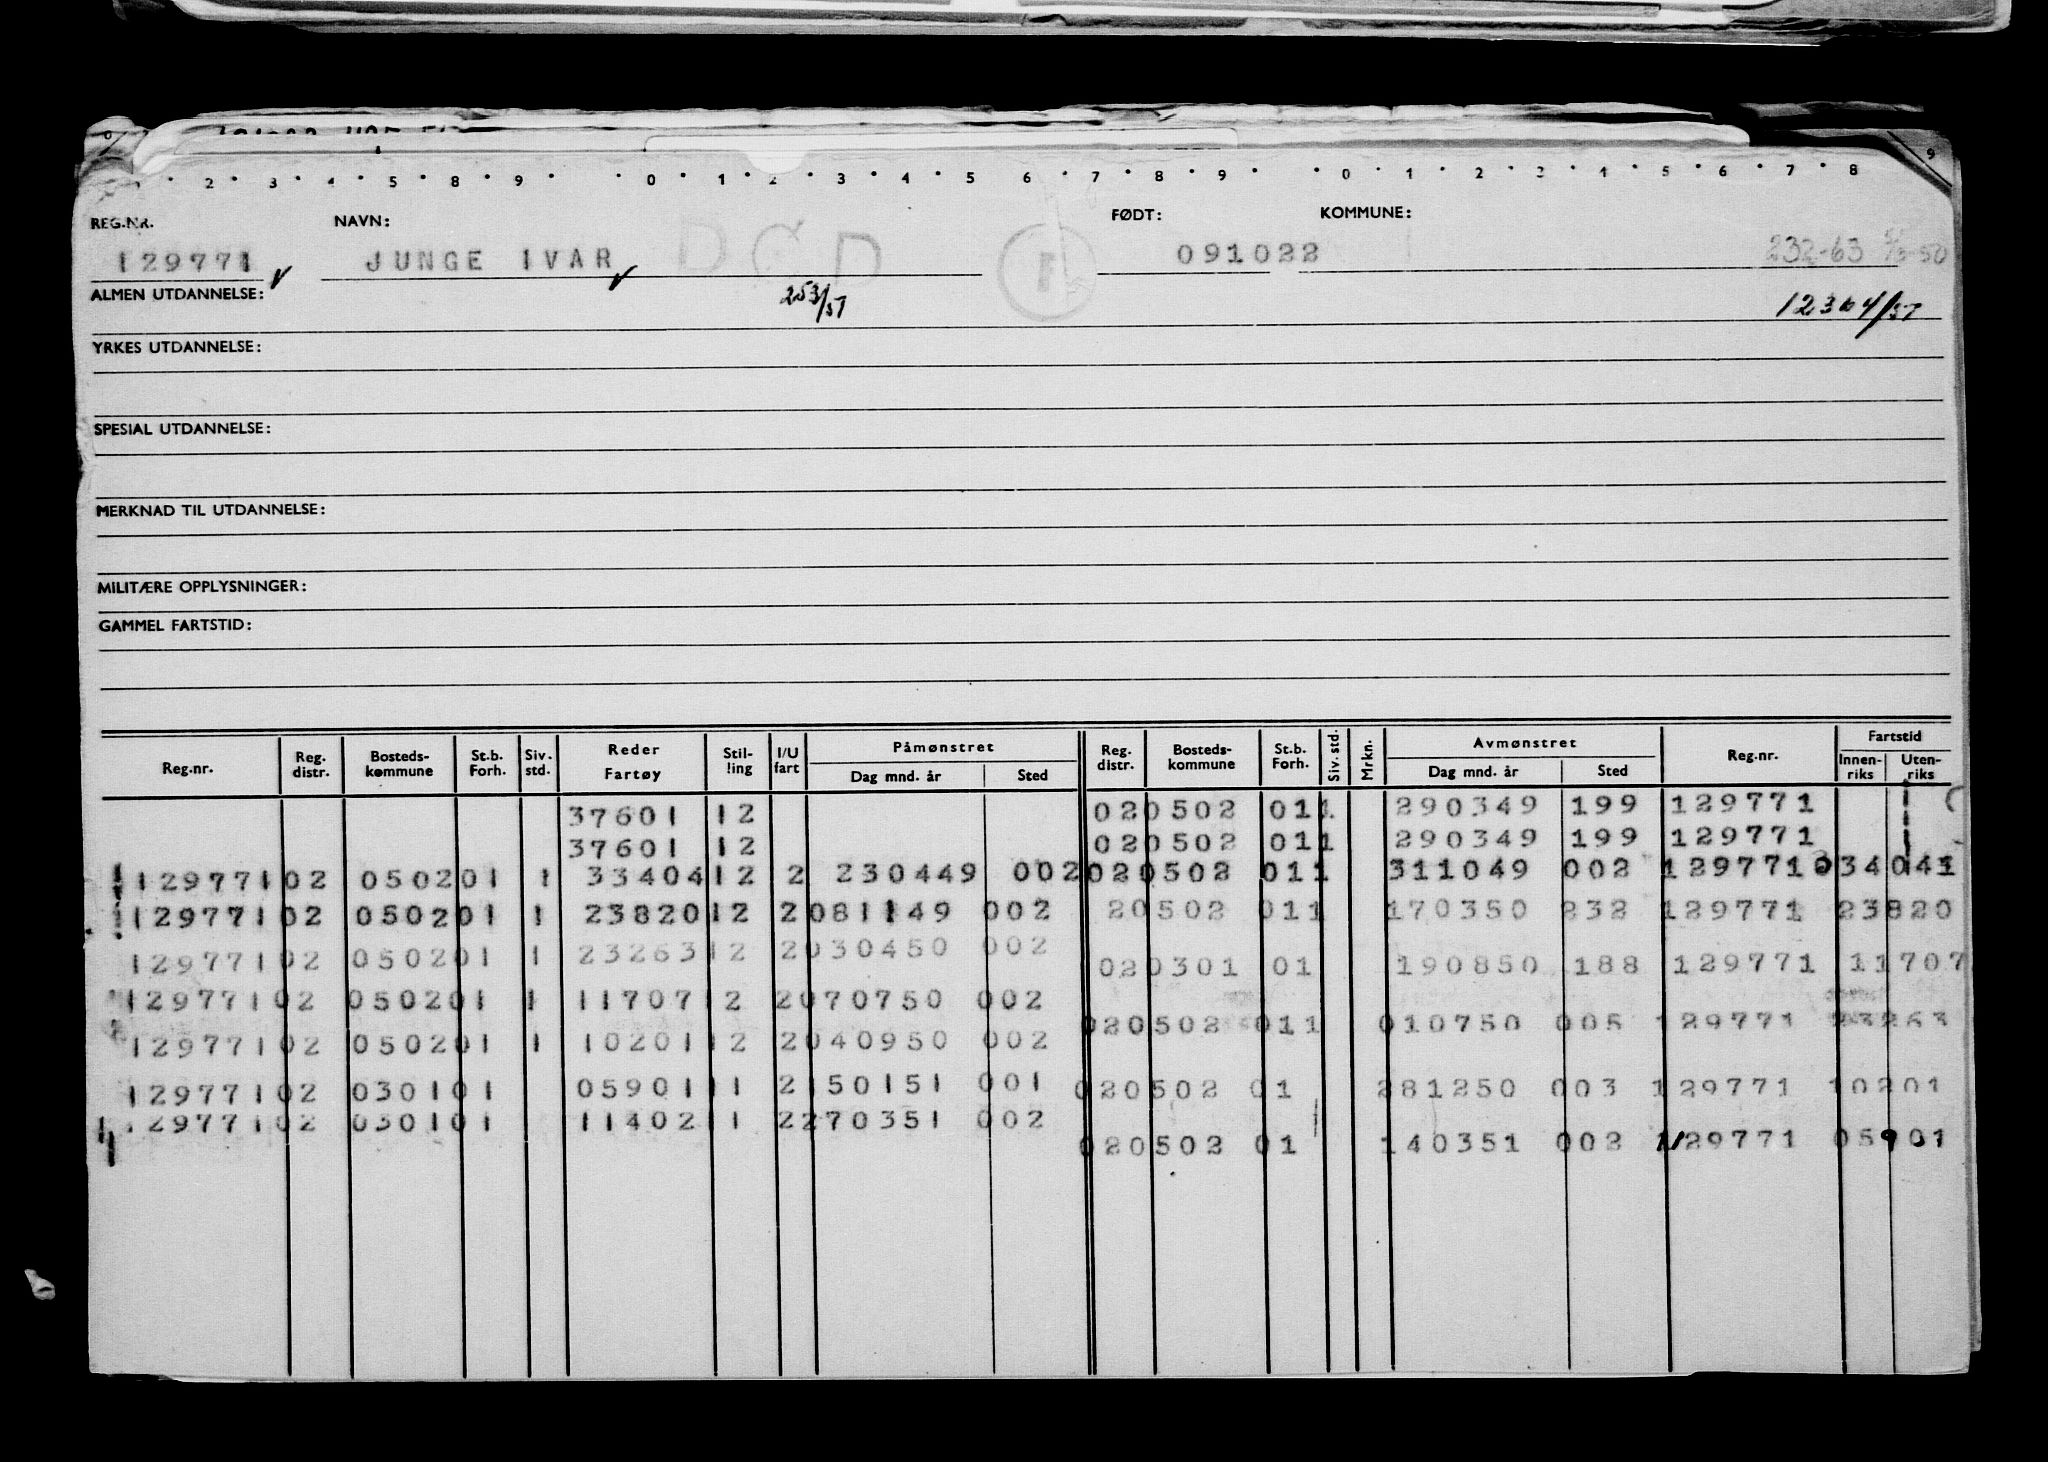 2 3 4 5 8 9 0 1 2 3 4 5 6 7 8 9 0 1 2 3 4 5 6 7 8 9
REG.NR. NAVN: FØDT: KOMMUNE:
129771 JUNGE IVAR DØD 1 091022 232-63
ALMEN UTDANNELSE: 253/51
YRKES UTDANNELSE:
SPESIAL UTDANNELSE:
MERKNAD TIL UTDANNELSE:
MILITÆRE OPPLYSNINGER:
GAMMEL FARTSTID:
Reg.nr. Reg. distr. Bosteds-kommune St.b. Forh. Siv. std. Reder Fartøy Stil-ling I/U fart Påmønstret Dag mnd. år Sted Reg. distr. Bosteds-kommune St.b. Forh. Siv. std. Mrkn. Avmønstret Dag mnd. år Sted Reg.nr. Fartstid Innen-riks Uten-riks
37601 12 020502 011 290349 199 129771
37601 12 020502 011 290349 199 129771
129771 02 0502 01 1 33404 12 2 230449 002 020502 011 311049 002 129771 034041
129771 02 0502 01 1 23820 12 2 081149 002 20502 011 170350 232 129771 23820
129771 02 0502 01 1 23263 12 2 030450 002 020301 01 190850 188 129771 11707
129771 02 0502 01 1 11707 12 2 070750 002 020502 011 010750 005 129771 23263
129771 02 0502 01 1 10201 12 2 040950 002
129771 02 0301 01 05901 11 2 150151 001 020502 01 281250 003 129771 10201
129771 02 0301 01 11402 11 2 270351 002 020502 01 140351 002 129771 05901